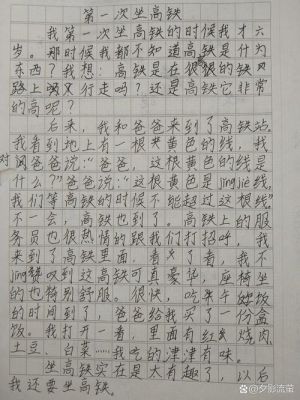 第一次坐高铁
我第一次坐高铁的时候我才六
岁。那时候我都不知道高铁是什为
东西？我想：高铁是在很狠的铁
路上吗又行走吗？还是高铁它非常
的高呢？
后来，我和爸爸来到了高铁站。
我看到地上有一根黄色的线，我
对爸爸说：“爸爸，这根黄色的线是
什么？”爸爸说：“这根黄色是jingjie线，
我们等高铁的时候不能超过这根线。”
不一会，高铁也到了。高铁上的服
务员也很热情的跟我们打招呼，我
来到了高铁里面，看了看，我不
jing赞叹到这高铁可真豪华，座椅坐
的也特别舒服。很快，吃午饭
的时间到了，爸爸给我买了一份盒
饭。我打开一看，里面有红烧肉、
土豆、白菜……我吃的津津有味。
坐高铁实在是大有趣了，以后
我还要坐高铁。